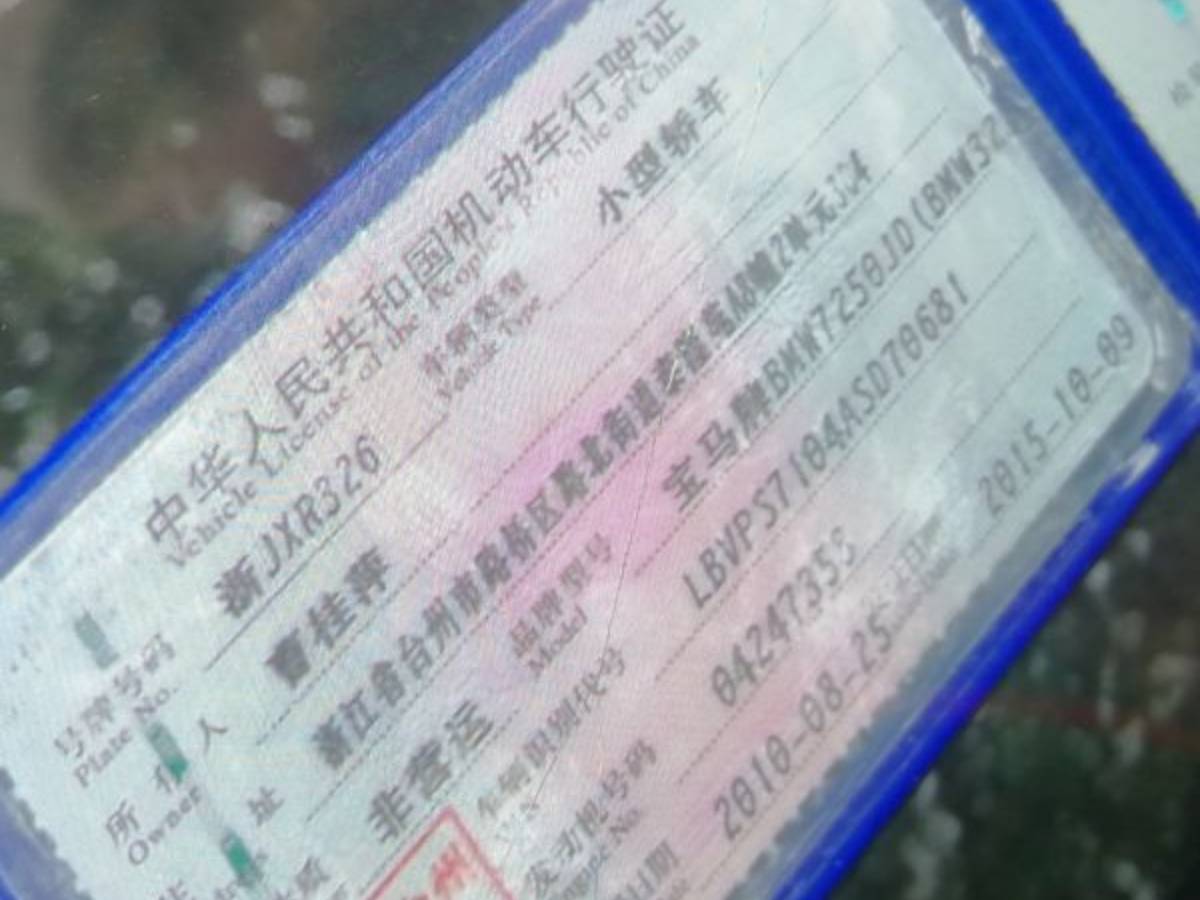 中华人民共和国机动车行驶证
Vehicle License of the People's Republic of China
号牌号码 浙JXR326 车辆类型 小型轿车
Plate No. Vehicle Type
所有人 曹桂萍
Owner
址 浙江省台州市路桥区路北街道 2单元
质 非营运 品牌型号 宝马牌BMW7250JD(BMW32
Model
车辆识别代号 LBVPS7104ASD70681
VIN
发动机号码 0424735
Engine No.
日期 2010-08-25 2015-10-09
州